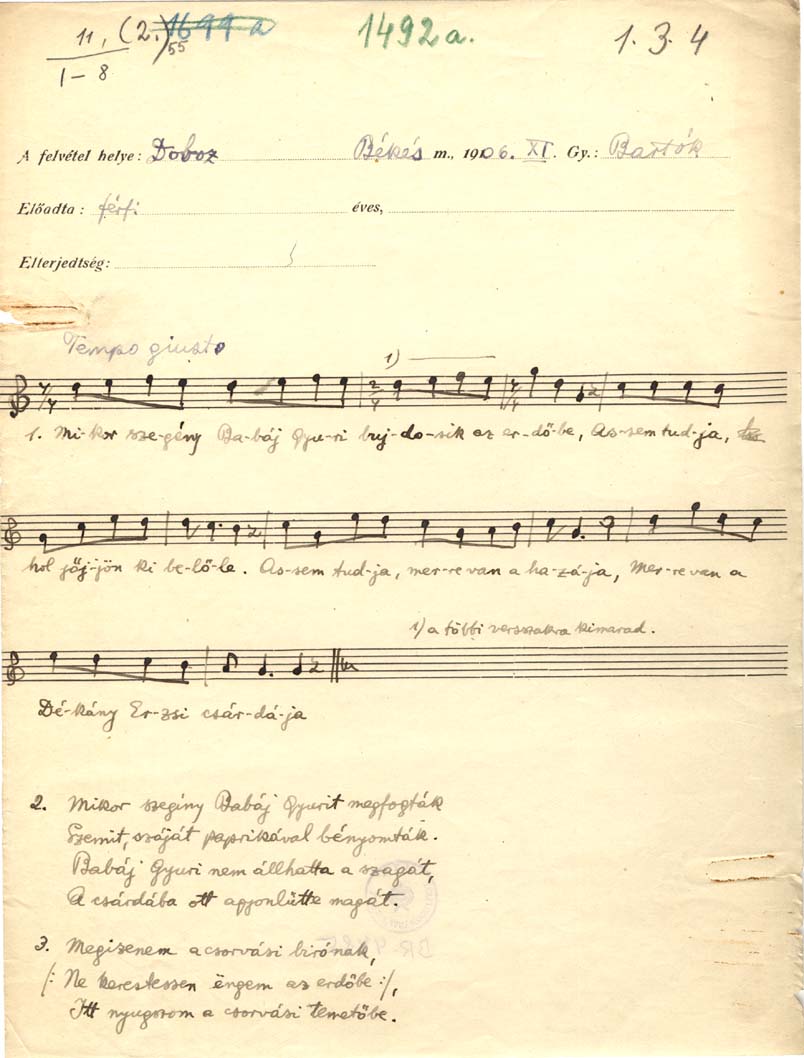 11, (2.) 1699 a 1492a. 1. 3. 4
55
1–8
A felvétel helye: Doboz Békés m., 1906. XI. Gy.: Bartók
Előadta: férfi éves,
Elterjedtség:
Tempo giusto
1)
1. Mi-kor sze-gény Ba-báj Gyu-ri buj-do-sik az er-dő-be, As-sem tud-ja,
hol jőj-jön ki be-lő-le. As-sem tud-ja, mer-re van a ha-zá-ja, Mer-re van a
1) a többi versszakra kimarad.
Dé-kány Er-zsi csár-dá-ja
2. Mikor szegíny Babáj Gyurit megfogták
Szemit, száját paprikával bényomták.
Babáj Gyuri nem állhatta a szagát,
A csárdába ott agyonlűtte magát.
3. Megizenem a csorvási birónak,
/: Ne kerestessen éngem az erdőbe :/,
Itt nyugszom a csorvási temetőbe.